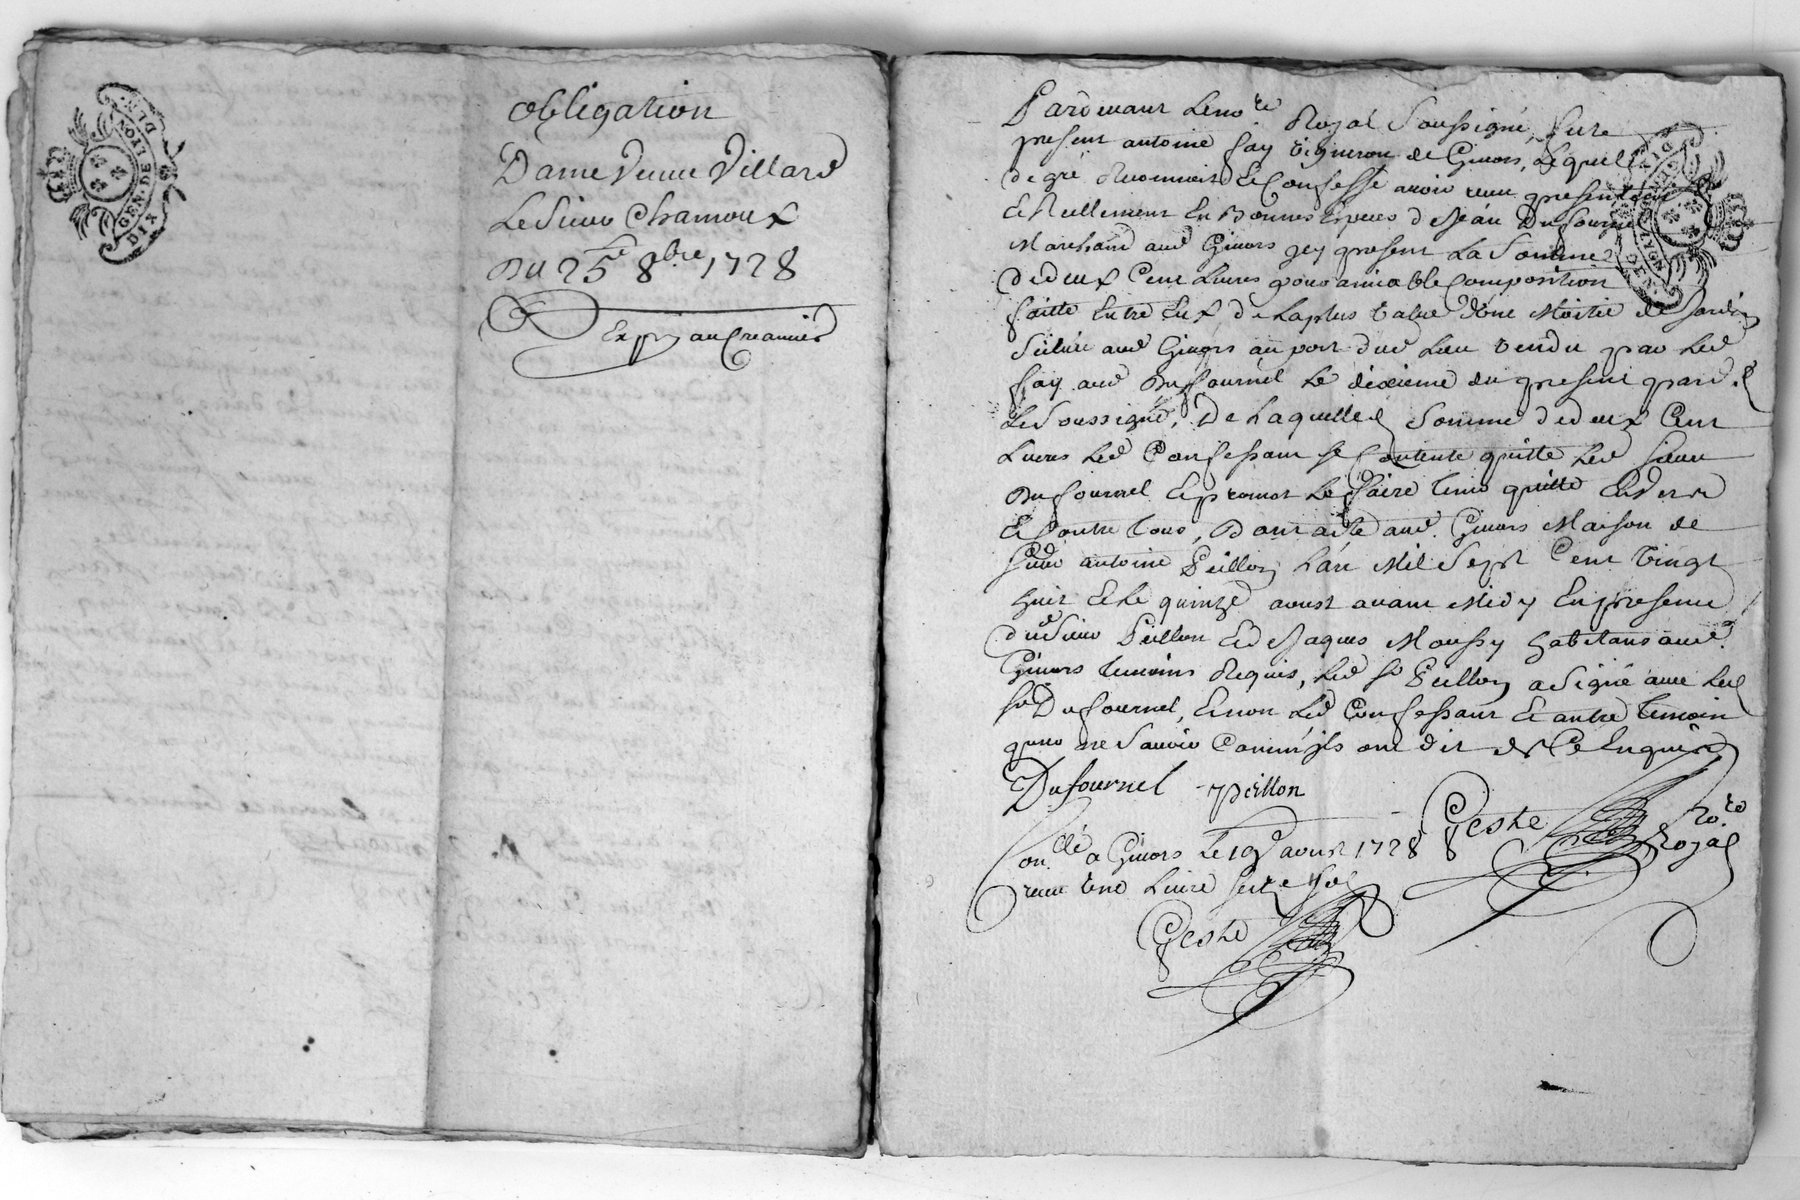 GEN. DE LYON
DIX
DEN.
obligation
Dame Veuve Villard
Le Sieur Chamoux
Du 25e 8bre 1728
Exp au Creancier
Pardevant Le nore Royal Soussigné, fut
present antoine fay vigneron de Givors, Lequel
de gré Reconnoit Et Confesse avoir receu presentem
Et Réellement En Bonnes Especes de Jean Dufournel
Marchand aud Givors icy present La Somme
De deux Cent Livres pour amiable Composition
faitte Entre Eux de La plus value d'une Moitié de Jardin
Scitué aud Givors au port dud Lieu vendu par Led
fay aud Dufournel Le dixieme du present pard.
Le Soussigné, De Laquelle Somme de deux Cent
Livres Led Confessant se Contente quitte Led sieur
Dufournel Et promet Le faire tenir quitte Envers
Et Contre tous, Dont acte aud. Givors Maison de
sieur antoine Peillon L'an Mil Sept Cent vingt
huit Et Le quinze aoust avant Midy En presence
dud Sieur Peillon Et de Jaques Moussy habitans aud.
Givors temoins Requis, Led sr Peillon a Signé avec Led
sr Dufournel, Et non Led Confessant Et autre temoin
pour ne Savoir Comm'ils ont dit de Ce Enquis
Dufournel peillon
Geste nore
Royal
Conllé a Givors Le 19 aoust 1728
receu une Livre seize sols
Geste